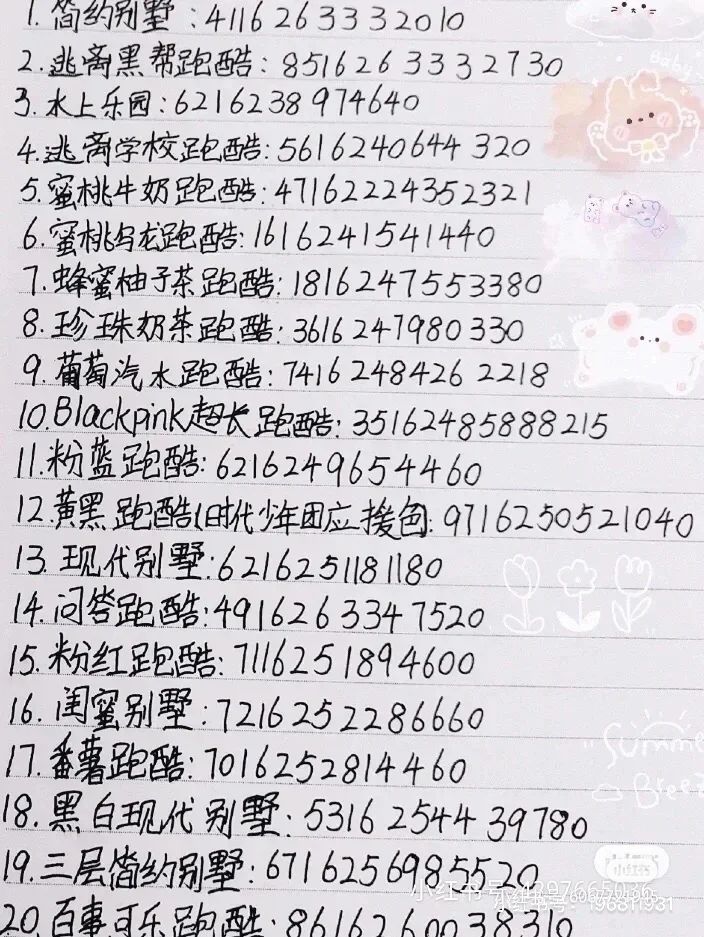 1. 简约别墅：4116263332010
2. 逃离黑帮跑酷：8516263332730
3. 水上乐园：6216238974640
4. 逃离学校跑酷：5616240644320
5. 蜜桃牛奶跑酷：47162224352321
6. 蜜桃乌龙跑酷：1616241541440
7. 蜂蜜柚子茶跑酷：1816247553380
8. 珍珠奶茶跑酷：3616247980330
9. 葡萄汽水跑酷：74162484262218
10. Blackpink超长跑酷：35162485888215
11. 粉蓝跑酷：6216249654460
12. 黄黑跑酷（时代少年团应援色：9716250521040
13. 现代别墅：6216251181180
14. 问答跑酷：4916263347520
15. 粉红跑酷：7116251894600
16. 闺蜜别墅：7216252286660
17. 番薯跑酷：7016252814460
18. 黑白现代别墅：5316254439780
19. 三层简约别墅：6716256985520
20. 百事可乐跑酷：8616260038310
Baby
Summe
Breez
小红书
小红书号：
小红书号：